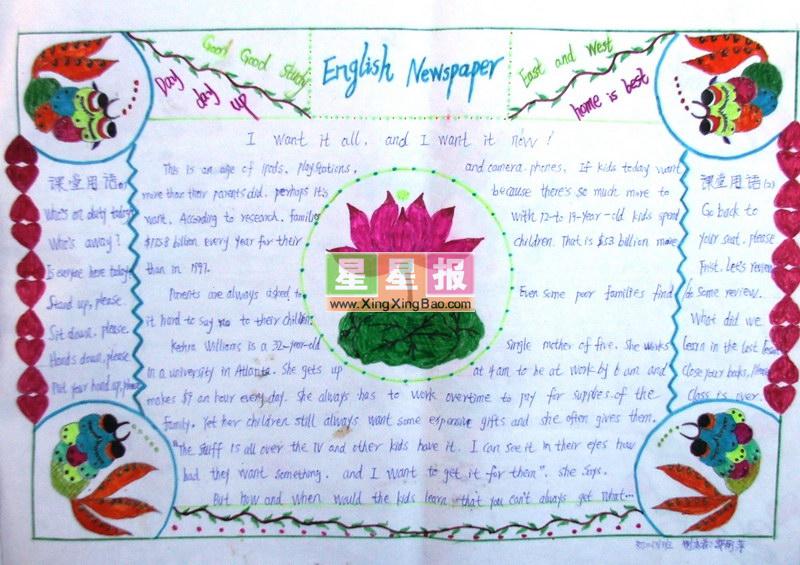 Good Good Study
Day day up
English Newspaper
East and West
home is best
I want it all, and I want it now!
课堂用语(1)
Who's on duty today
Who's away?
Is everyone here today
Stand up, please.
Sit down, please.
Hands down, please
Put your hand up, please
This is an age of ipods, playstations, and camera-phones. If kids today want
more than their parents did, perhaps it's because there's so much more to
want. According to research, families with 12-to 19-year-old kids spend
billion every year for their children. That is $53 billion more
than in 1997.
Parents are always asked to Even some poor families find
it hard to say no to their children.
Williams is a 32-year-old single mother of five. She works
in a university in Atlanta. She gets up at 4 am to be at work by 6 am and
makes $9 an hour every day. She always has to work overtime to pay for supplies of the
family. Yet her children still always want some expensive gifts and she often gives them.
"The stuff is all over the TV and other kids have it. I can see it in their eyes how
bad they want something, and I want to get it for them", she says.
But how and when would the kids learn that you can't always get what...
课堂用语(2)
Go back to
your seat, please
Frist, Let's review
do some review.
What did we
learn in the last lesson
Close your books, please
Class is over.
星星报
www.XingXingBao.com